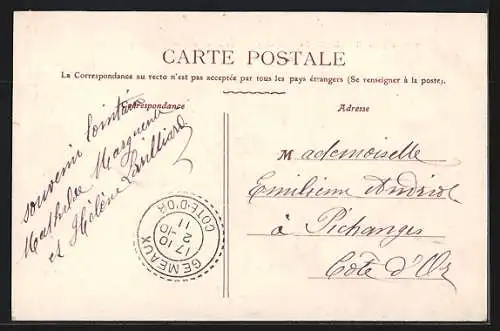 CARTE POSTALE
La Correspondance au recto n'est pas acceptée par tous les pays étrangers (Se renseigner à la poste).
Correspondance
Adresse
souvenir lointain
Mathilde Marguerite
et Hélène
Mademoiselle
Emilienne
à Pichanges
Côte d'Or
GEMEAUX
COTE-D'OR
17 10
2 -10
11